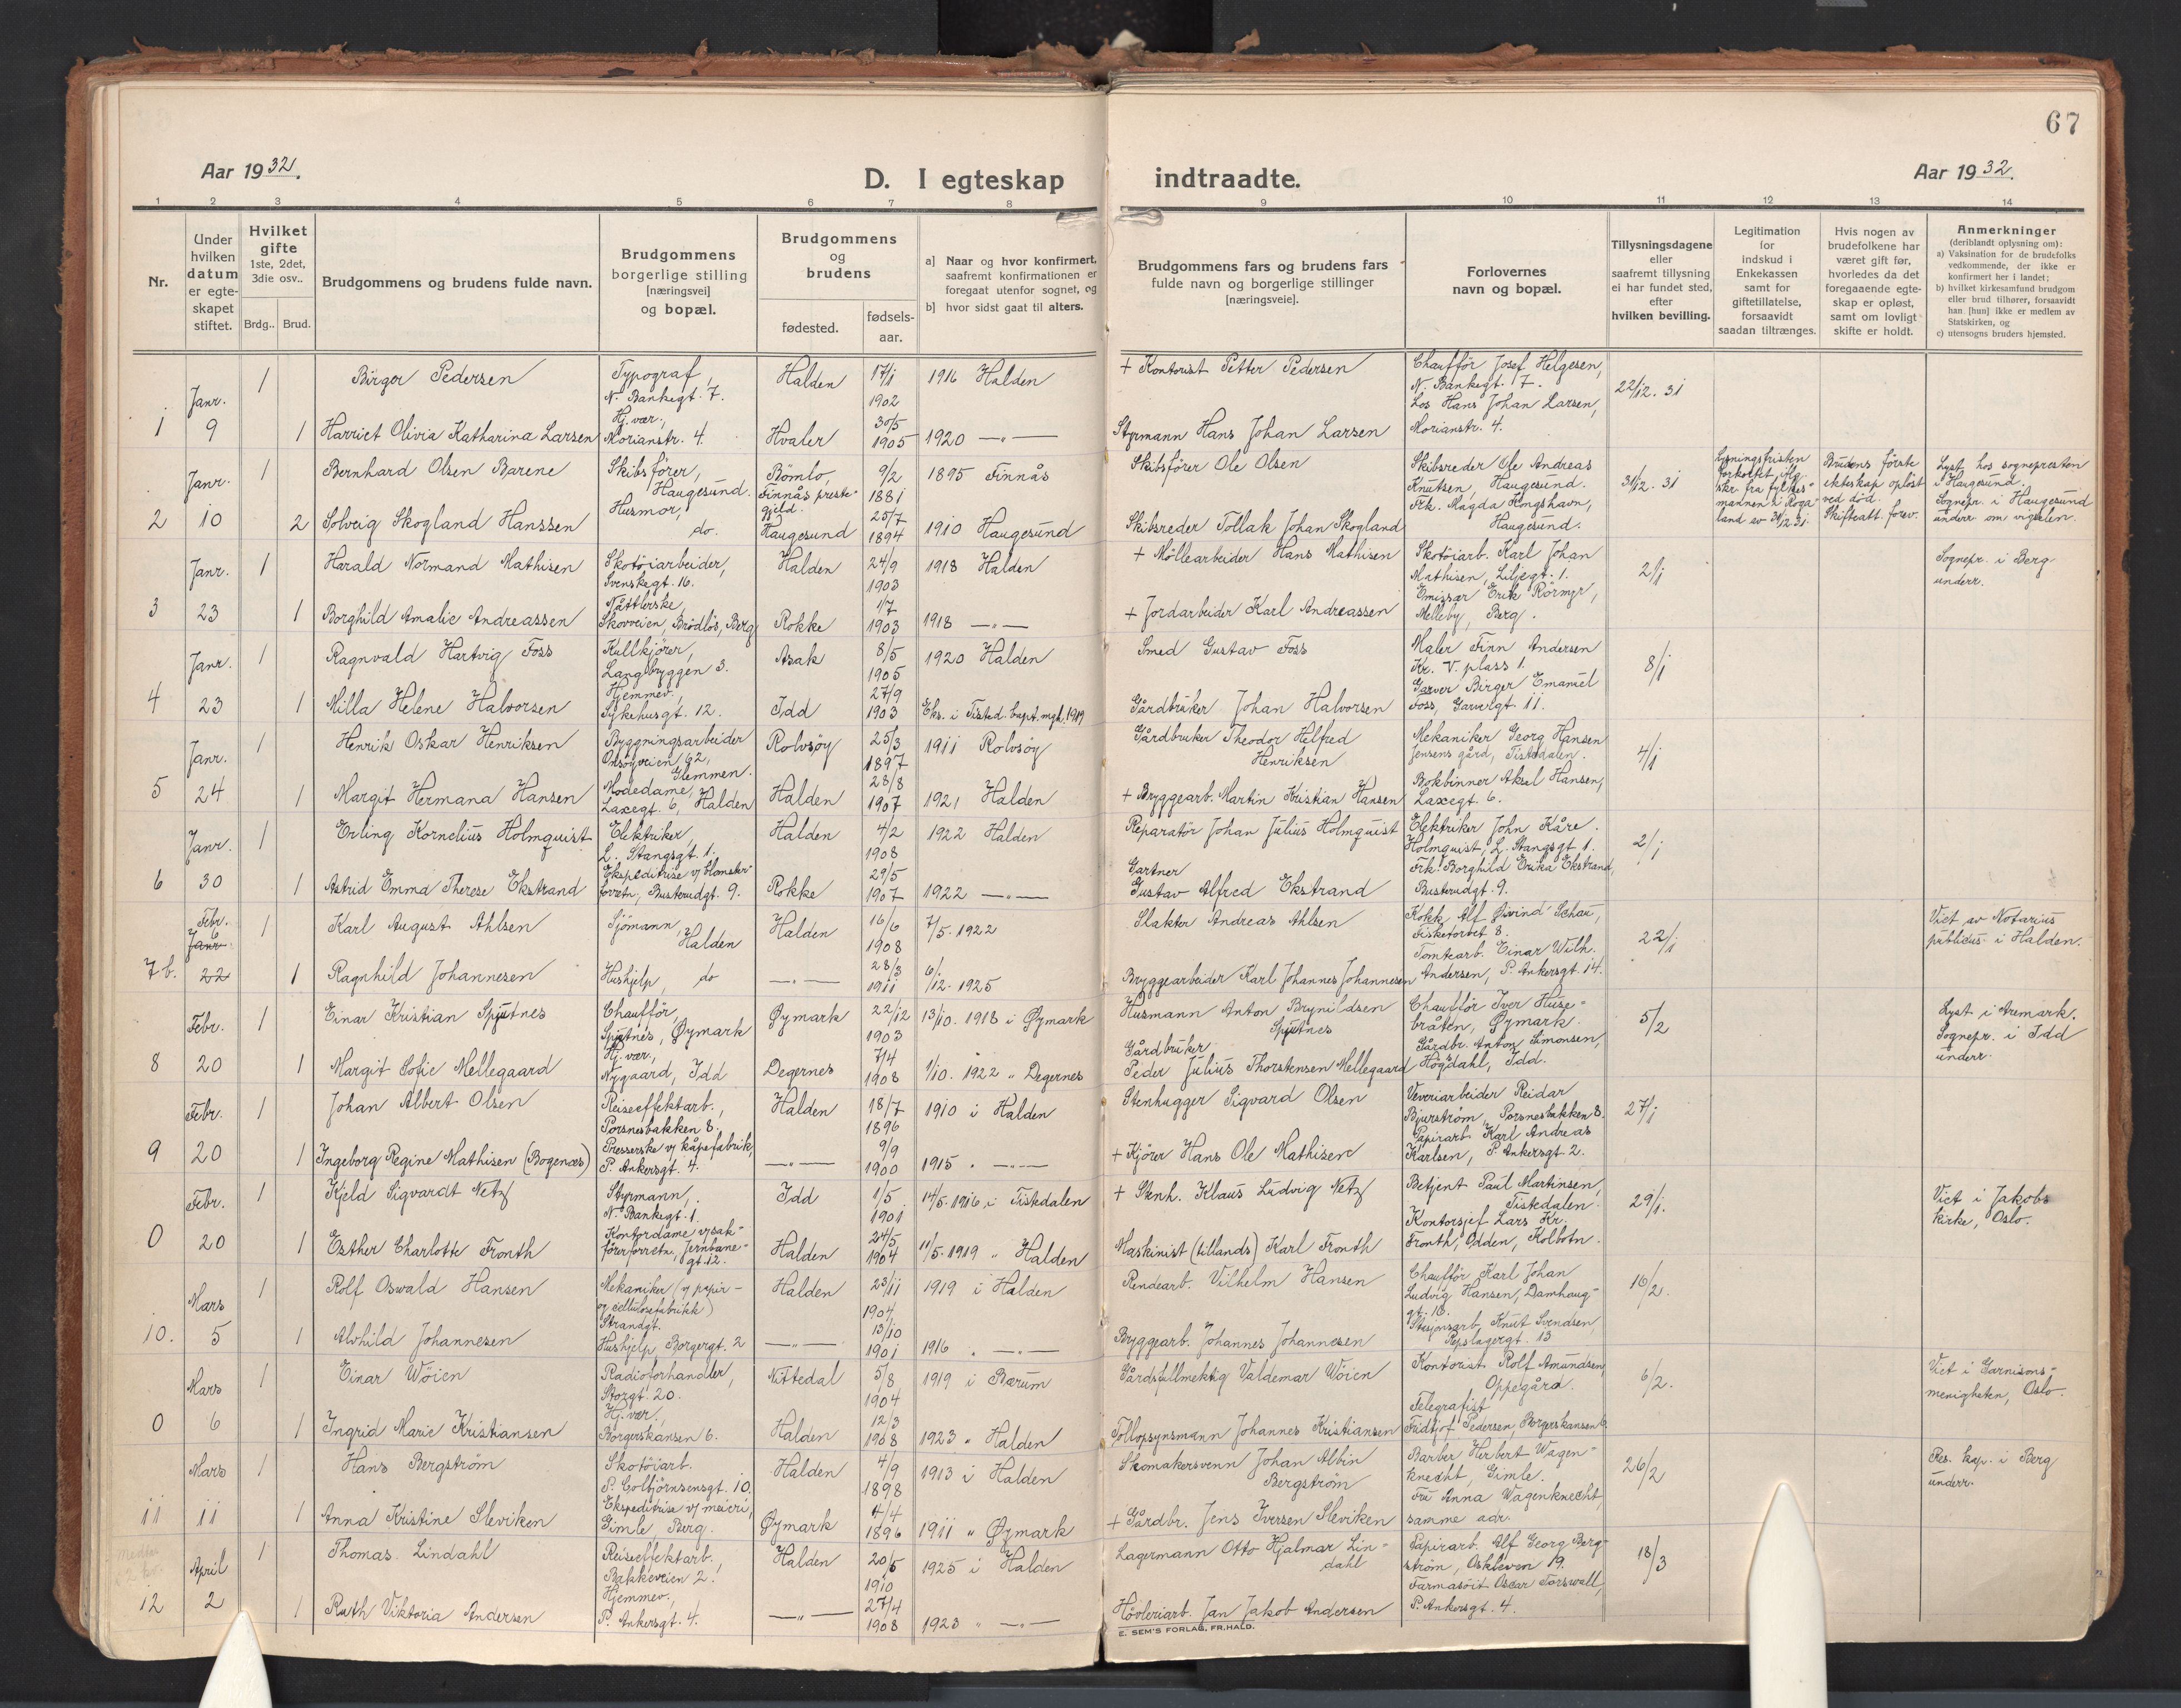 67
Aar 1932.
D. I egteskap indtraadte.
Aar 1932.
1 2 3 4 5 6 7 8 9 10 11 12 13 14
Nr.
Under hvilken datum er egte-skapet stiftet.
Hvilket gifte 1ste, 2det, 3die osv..
Brdg.. Brud.
Brudgommens og brudens fulde navn.
Brudgommens borgerlige stilling [næringsvei] og bopæl.
Brudgommens og brudens
fødested.
fødsels-aar.
a] Naar og hvor konfirmert, saafremt konfirmationen er foregaat utenfor sognet, og
b] hvor sidst gaat til alters.
Brudgommens fars og brudens fars fulde navn og borgerlige stillinger [næringsveie].
Forlovernes navn og bopæl.
Tillysningsdagene eller saafremt tillysning ei har fundet sted, efter hvilken bevilling.
Legitimation for indskud i Enkekassen samt for giftetillatelse, forsaavidt saadan tiltrænges.
Hvis nogen av brudefolkene har været gift før, hvorledes da det foregaaende egte-skap er opløst, samt om lovligt skifte er holdt.
Anmerkninger (deriblandt oplysning om):
a) Vaksination for de brudefolks vedkommende, der ikke er konfirmert her i landet;
b) hvilket kirkesamfund brudgom eller brud tilhører, forsaavidt han [hun] ikke er medlem av Statskirken, og
c) utensogns bruders hjemsted.
1 Janr. 9
1 Birger Pedersen Typograf, N. Bankegt. 7. Halden 17/1 1902 1916 Halden + Kontorist Petter Pedersen Chaufför Josef Helgesen, N. Bankegt. 7. 22/12. 31
1 Harriet Olivia Katharina Larsen Hj. vær., Morianstr. 4. Hvaler 30/5 1905 1920 —"— Styrmann Hans Johan Larsen Los Hans Johan Larsen, Morianstr. 4.
2 Janr. 10
1 Bernhard Olsen Barene Skibsfører, Haugesund. Bömlo, Finnås preste-gjeld. 9/2 1881 1895 Finnås Skibsfører Ole Olsen Skibsreder Ole Andreas Knutsen, Haugesund. 31/12. 31
2 Solveig Skogland Hanssen Husmor, do. Haugesund 25/7 1894 1910 Haugesund Skibsreder Tollak Johan Skogland Frk. Magda Hongshavn, Haugesund.
Lysningsfristen forkortet iflg. skr. fra fylkes-mannen i Roga-land av 30/12 31.
Brudens første ekteskap opløst ved død. Skifteatt. forev.
Lyst hos sognepresten i Haugesund. Sognepr. i Haugesund underr. om vigselen.
3 Janr. 23
1 Harald Normand Mathisen Skotöiarbeider, Svenskegt. 16. Halden 24/9 1903 1918 Halden + Möllearbeider Hans Mathisen Skotöiarb. Karl Johan Mathisen, Liljegt. 1. 2/1 Sognepr. i Berg underr.
1 Borghild Amalie Andreassen Nåtlerske, Skovveien, Brödlös, Berg Rokke 1/7 1903 1918 —"— + Jordarbeider Karl Andreassen Emissær Erik Rörmyr, Melleby, Berg.
4 Janr. 23
1 Ragnvald Hartvig Foss Kullkjörer, Langbryggen 3. Asak 8/5 1905 1920 Halden Smed Gustav Foss Maler Finn Andersen Kr. V. plass 1. 8/1
1 Milla Helene Halvorsen Hjemmev., Sykehusgt. 12. Idd 27/9 1903 Eks. i Tisted. bapt. mgh. 1919 Gårdbruker Johan Halvorsen Garver Birger Emanuel Foss, Garvergt 11.
5 Janr. 24
1 Henrik Oskar Henriksen Byggningsarbeider Onsøyveien 62, Glemmen. Rolvsøy 25/3 1897 1911 Rolvsøy Gårdbruker Theodor Helfred Henriksen Mekaniker Georg Hansen Jensens gård, Tistedalen. 4/1
1 Margit Hermana Hansen Modedame, Laxegt. 6, Halden Halden 28/8 1907 1921 Halden + Bryggearb. Martin Kristian Hansen Bokbinner Aksel Hansen, Laxegt. 6.
6 Janr. 30
1 Erling Kornelius Holmquist Elektriker, L. Stangsgt. 1. Halden 4/2 1908 1922 Halden Reparatör Johan Julius Holmquist Elektriker John Kåre Holmquist, L. Stangsgt 1. 2/1
1 Astrid Emma Therese Ekstrand Ekspeditrise v/ blomster-forretn, Busterudgt. 9. Rokke 29/5 1907 1922 —"— Gartner Gustav Alfred Ekstrand Frk. Borghild Erika Ekstrand, Busterudgt. 9.
7 b. Febr. 6 Janr. 22
1 Karl August Ahlsen Sjömann, Halden Halden 16/6 1908 7/5. 1922 Slakter Andreas Ahlsen Kokk Alf Øivind Schau, Fisketorvet 8. 22/1 Viet av Notarius publicus i Halden.
1 Ragnhild Johannesen Hushjelp, do —"— 28/3 1911 6/12. 1925 Bryggearbeider Karl Johannes Johannesen Tomtearb. Einar Wilh. Andersen, P. Ankersgt. 14.
8 Febr. 20
1 Einar Kristian Spjutnes Chaufför, Spjutnes, Øymark Øymark 22/12 1903 13/10. 1918 i Øymark Husmann Anton Brynildsen Spjutnes Chaufför Iver Huse-bråten, Øymark. 5/2 Lyst i Aremark. Sognepr. i Idd underr.
1 Margit Sofie Mellegaard Hj. vær, Nygaard, Idd Degernes 7/4 1908 1/10. 1922 " Degernes Gårdbruker Peder Julius Thorstensen Mellegaard Gårdbr. Anton Simonsen, Högdahl, Idd.
9 Febr. 20
1 Johan Albert Olsen Reiseeffektarb., Porsnesbakken 8. Halden 18/7 1896 1910 i Halden Stenhugger Sigvard Olsen Veveriarbeider Reidar Bjurström, Porsnesbakken 8. 27/1
1 Ingeborg Regine Mathisen (Bogenæs) Presserske v/ kåpefabrikk, P. Ankersgt. 4. —"— 9/9 1900 1915 " —"— + Kjörer Hans Ole Mathisen Papirarb. Karl Andreas Karlsen, P. Ankersgt 2.
0 Febr. 20
1 Kjeld Sigvardt Netz Styrmann, N. Bankegt. 1. Idd 1/5 1901 14/5. 1916 i Tistedalen + Stenh. Klaus Ludvig Netz Betjent Paul Martinsen, Tistedalen. 29/1. Viet i Jakobs kirke, Oslo.
1 Esther Charlotte Fronth Kontordame v/ sak-förerforretn, Jernbane-gt. 12. Halden 24/5 1904 11/5. 1919 " Halden Maskinist (tillands) Karl Fronth Kontorsjef Lars Kr. Fronth, Odden, Kolbotn.
10. Mars 5
1 Rolf Oswald Hansen Mekaniker (v/ papir- og cellulosefabrikk) Strandgt. Halden 23/11 1904 1919 i Halden Rendearb. Vilhelm Hansen Chaufför Karl Johan Ludvig Hansen, Damhaug-gt. 18. 16/2.
1 Alvhild Johannesen Hushjelp, Borgergt. 2 —"— 13/10 1901 1916 " —"— Byggearb. Johannes Johannesen Stasjonsarb. Knut Svendsen, Repslagergt. 13
0 Mars 6
1 Einar Wöien Radioforhandler, Storgt. 20. Nittedal 5/8 1904 1919 i Bærum Gårdsfullmektig Valdemar Wöien Kontorist Rolf Amundsen, Oppegård. 6/2. Viet i Garnisons-menigheten, Oslo.
1 Ingrid Marie Kristiansen Hj. vær., Borgerskansen 6. Halden 12/3 1908 1923 " Halden Tollopsynsmann Johannes Kristiansen Telegrafist Fridtjof Pedersen, Borgerskansen 6.
11 Mars 11
1 Hans Bergström Skotöiarb. P. Colbjörnsensgt. 10. Halden 4/9 1898 1913 i Halden Skomakersvenn Johan Albin Bergström Barber Herbert Wagen-knecht, Gimle. 26/2 Res. kap. i Berg underr.
1 Anna Kristine Sleviken Ekspeditrise v/ meieri, Gimle, Berg. Øymark 4/4 1896 1911 " Øymark + Gårdbr. Jens Iversen Sleviken Fru Anna Wagenknecht, samme adr.
12 April 2
1 Thomas Lindahl Reiseeffektarb., Bakkeveien 2. Halden 20/5 1910 1925 i Halden Lagermann Otto Hjalmar Lin-dahl Papirarb. Alf Georg Berg-ström, Oskleven 19. 18/3
1 Ruth Viktoria Andersen Hjemmev., P. Ankersgt. 4. —"— 27/4 1908 1923 " —"— Hövleriarb. Jan Jakob Andersen Farmasöit Oscar Torswall, P. Ankersgt. 4.
E. SEM'S FORLAG, FR.HALD.